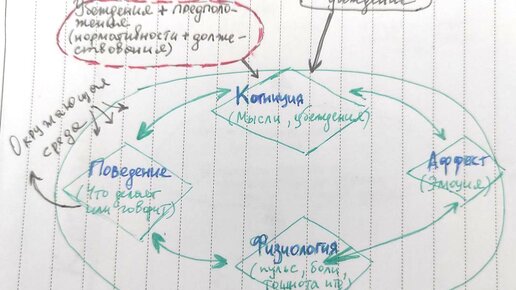 Убеждения + предполо-
жения
(нормативности + долже-
ствования)
Окружающая
среда
Когниция
(Мысли, убеждения)
Поведение
(Что делает
или говорит)
Аффект
(Эмоция)
Физиология
(пульс, боли,
тошнота итп)